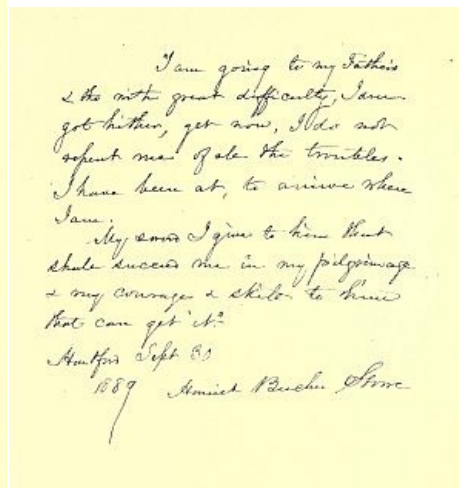 I am going to my Fathers
& tho with great difficulty, I am
got hither, yet now, I do not
repent me of all the troubles
I have been at, to arrive where
I am.
My sword I give to him that
shall succeed me in my pilgrimage
& my courage & skill to him
that can get it."
Hartford Sept 30
1889 Harriet Beecher Stowe